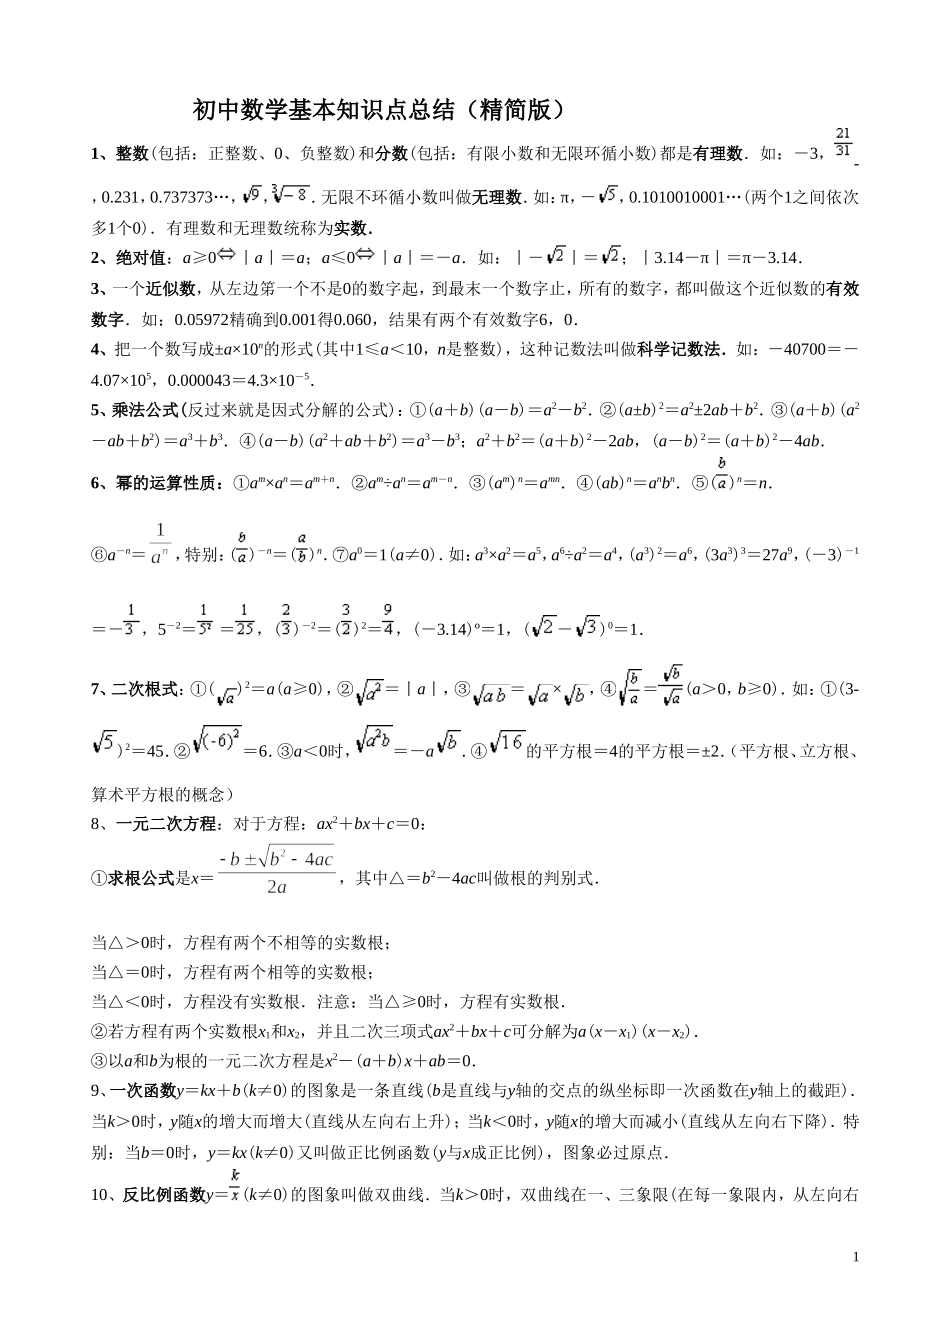 初中数学基本知识点总结（精简版）
1、整数(包括：正整数、0、负整数)和分数(包括：有限小数和无限环循小数)都是有理数．如：－3，21/31-
，0.231，0.737373…，√9，³√－8．无限不环循小数叫做无理数．如：π，－√5，0.1010010001…(两个1之间依次
多1个0)．有理数和无理数统称为实数．
2、绝对值：a≥0⇔丨a丨＝a；a≤0⇔丨a丨＝－a．如：丨－√2丨＝√2；丨3.14－π丨＝π－3.14．
3、一个近似数，从左边笫一个不是0的数字起，到最末一个数字止，所有的数字，都叫做这个近似数的有效
数字．如：0.05972精确到0.001得0.060，结果有两个有效数字6，0．
4、把一个数写成±a×10ⁿ的形式(其中1≤a＜10，n是整数)，这种记数法叫做科学记数法．如：－40700＝－
4.07×10⁵，0.000043＝4.3×10⁻⁵．
5、乘法公式(反过来就是因式分解的公式)：①(a＋b)(a－b)＝a²－b²．②(a±b)²＝a²±2ab＋b²．③(a＋b)(a²
－ab＋b²)＝a³＋b³．④(a－b)(a²＋ab＋b²)＝a³－b³；a²＋b²＝(a＋b)²－2ab，(a－b)²＝(a＋b)²－4ab．
6、幂的运算性质：①aᵐ×aⁿ＝aᵐ⁺ⁿ．②aᵐ÷aⁿ＝aᵐ⁻ⁿ．③(aᵐ)ⁿ＝aᵐⁿ．④(ab)ⁿ＝aⁿbⁿ．⑤(b/a)ⁿ＝n．
⑥a⁻ⁿ＝1/aⁿ，特别：(b/a)⁻ⁿ＝(a/b)ⁿ．⑦a⁰＝1(a≠0)．如：a³×a²＝a⁵，a⁶÷a²＝a⁴，(a³)²＝a⁶，(3a³)³＝27a⁹，(－3)⁻¹
＝－1/3，5⁻²＝1/5²＝1/25，(2/3)⁻²＝(3/2)²＝9/4，(－3.14)º＝1，(√2－√3)⁰＝1．
7、二次根式：①(√a)²＝a(a≥0)，②√a²＝丨a丨，③√ab＝√a×√b，④√(b/a)＝√b/√a(a＞0，b≥0)．如：①(3-
√5)²＝45．②√(-6)²＝6．③a＜0时，√a²b＝－a√b．④√16的平方根＝4的平方根＝±2．（平方根、立方根、
算术平方根的概念）
8、一元二次方程：对于方程：ax²＋bx＋c＝0：
①求根公式是x＝(-b±√(b²-4ac))/2a，其中△＝b²－4ac叫做根的判别式．
当△＞0时，方程有两个不相等的实数根；
当△＝0时，方程有两个相等的实数根；
当△＜0时，方程没有实数根．注意：当△≥0时，方程有实数根．
②若方程有两个实数根x₁和x₂，并且二次三项式ax²＋bx＋c可分解为a(x－x₁)(x－x₂)．
③以a和b为根的一元二次方程是x²－(a＋b)x＋ab＝0．
9、一次函数y＝kx＋b(k≠0)的图象是一条直线(b是直线与y轴的交点的纵坐标即一次函数在y轴上的截距)．
当k＞0时，y随x的增大而增大(直线从左向右上升)；当k＜0时，y随x的增大而减小(直线从左向右下降)．特
别：当b＝0时，y＝kx(k≠0)又叫做正比例函数(y与x成正比例)，图象必过原点．
10、反比例函数y＝k/x(k≠0)的图象叫做双曲线．当k＞0时，双曲线在一、三象限(在每一象限内，从左向右
1